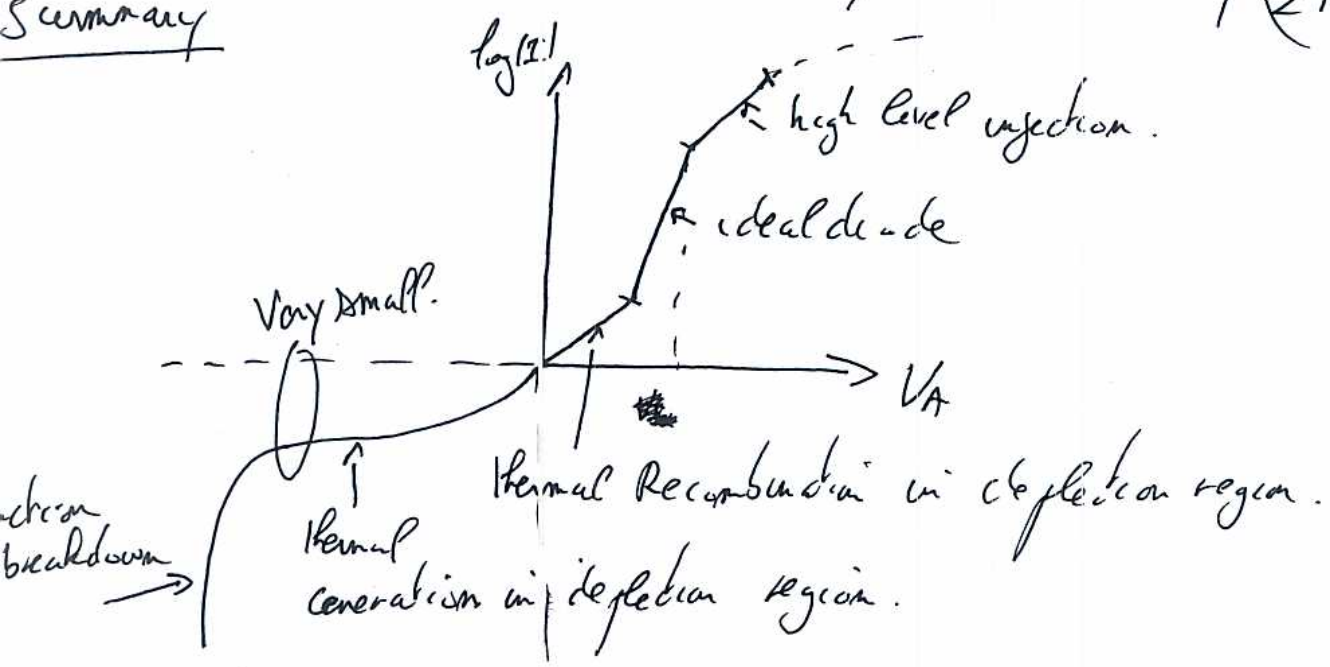 Summary
log(I)
high level injection.
ideal diode
Very small.
V_A
thermal Recombination in depletion region.
breakdown
thermal
generation in depletion region.